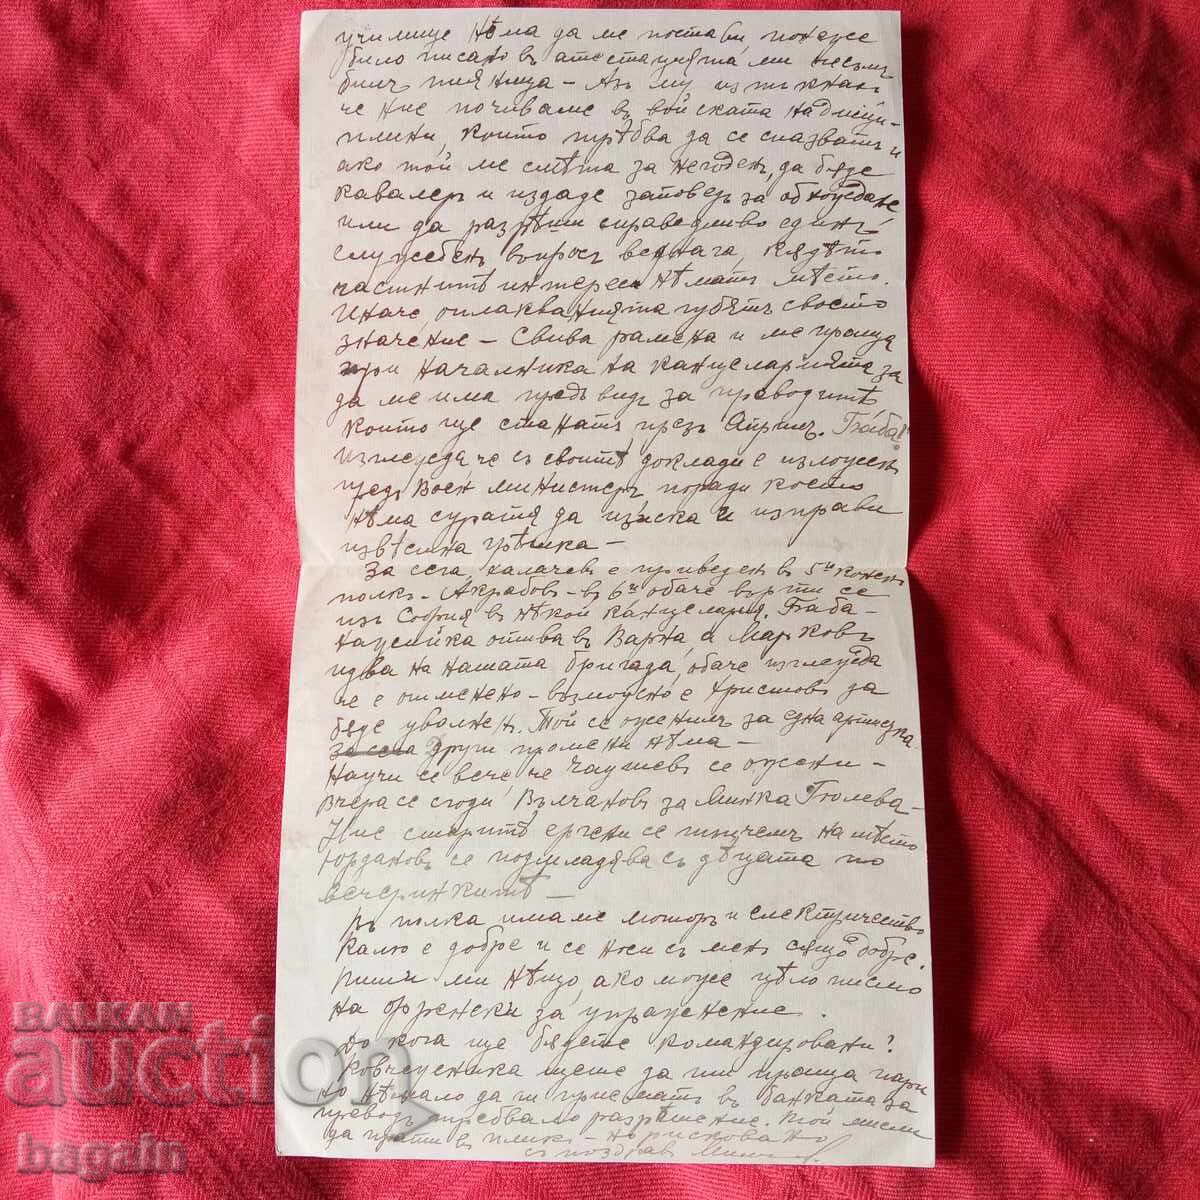 училище нѣма да ме постави понеже
било писано въ атестацията ми че съмъ
билъ пияница – Азъ му изтъкнахъ
че ние почиваме въ войската на дисци-
плини, които трѣбва да се спазватъ и
ако той ме смѣта за негоденъ, да бѫде
кавалеръ и издаде заповедь за обхождане
или да разрѣши справедливо единъ
служебенъ въпросъ веднага, кѫдѣто
частнитѣ интереси нѣматъ мѣсто.
Иначе, оплакванията губятъ своето
значение – Свива рамена и ме праща
при Началника на канцеларията за
да ме има предъ видъ за преводитѣ
които ще станатъ презъ Априлъ. Баба!
изглежда че съ своитѣ доклади е изложенъ
предъ Воен. министеръ, поради което
нѣма сурата да изиска и изправи
извѣстна грѣшка –
За сега, Халачевъ е приведенъ въ 5и коненъ
полкъ – Акрабовъ – въ 6и обаче върти се
изъ София въ нѣкой канцелария. Баба-
отива въ Варна, а Марковъ
идва на нашата бригада, обаче изглежда
че е отменено – възможно е Христовъ да
бѫде уволненъ. Той се оженилъ за една артистка.
За сега други промени нѣма –
Научи се вече че Чаушевъ се ожени –
Вчера се сгоди Вълчановъ за Минка Гюлева –
Ние старитѣ ергени се пъчемъ на мѣсто
Юрдановъ се подмладява съ дѣцата по
вечеринкитѣ –
Въ полка имаме моторъ и електричество
Калю е добре и се носи съ мен сѫщо добре.
Пиши ми нѣщо, ако може цѣло писмо
на френски за упражнение.
До кога ще бѫдете командировани?
Ковчежника щеше да ти праща пари
но нѣмало да ги приематъ въ банката за
преводъ трѣбвало разрѣшение. Той мисли
да прати въ пликъ – но рисковано
съ поздравъ
BALKAN
auction
bagain